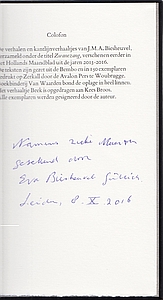 Colofon
De verhalen en kantlijnverhaaltjes van J.M.A. Biesheuvel,
verzameld onder de titel Zwanezang, verschenen eerder in
het Hollands Maandblad uit de jaren 2013-2016.
De teksten zijn gezet uit de Bembo en in 150 exemplaren
gedrukt op Zerkall door de Avalon Pers te Woubrugge.
Boekbinderij Van Waarden bond de oplage in heel linnen.
Het verhaaltje Beek is opgedragen aan Kees Broos.
Alle exemplaren werden gesigneerd door de auteur.
Namens zieke Maarten
getekend door
Eva Biesheuvel Gütlich
Leiden, 8 X 2016